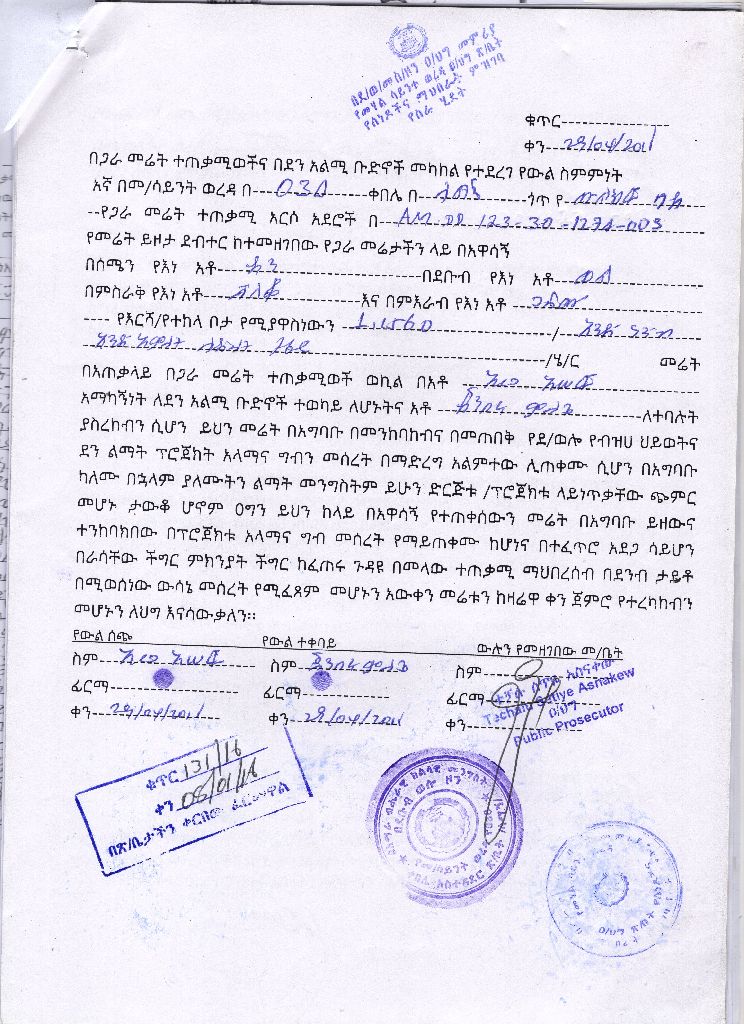 በደ/ወ/መስ/ዞን ዐ/ህግ መምሪያ
የመሃል ሳይንት ወረዳ ዐ/ህግ ጽ/ቤት
የሰነዶችና ማህበራት ምዝገባ
የስራ ሂደት
ቁጥር
ቀን 29/04/2011
በጋራ መሬት ተጠቃሚወችና በደን አልሚ ቡድኖች መካከል የተደረገ የውል ስምምነት
እኛ በመ/ሳይንት ወረዳ በ 030 ቀበሌ በ ጎጥ የ
የጋራ መሬት ተጠቃሚ አርሶ አደሮች በ AM DD 123-30-1274-003
የመሬት ይዞታ ደብተር ከተመዘገበው የጋራ መሬታችን ላይ በአዋሳኝ
በሰሜን የእነ አቶ በደቡብ የእነ አቶ ወሰ
በምስራቅ የእነ አቶ እና በምእራብ የእነ አቶ
የእርሻ/የተከላ ቦታ የሚያዋስነውን 1.1560 / አንድ ነጥብ
አንድ አምስት ስድስት ዜሮ /ሄ/ር መሬት
በአጠቃላይ በጋራ መሬት ተጠቃሚወች ወኪል በአቶ
አማካኝነት ለደን አልሚ ቡድኖች ተወካይ ለሆኑትና አቶ ለተባሉት
ያስረከብን ሲሆን ይህን መሬት በአግባቡ በመንከባከብና በመጠበቅ የደ/ወሎ የብዝሀ ህይወትና
ደን ልማት ፕሮጀክት አላማና ግብን መሰረት በማድረግ አልምተው ሊጠቀሙ ሲሆን በአግባቡ
ከለሙ በኋላም ያለሙትን ልማት መንግስትም ይሁን ድርጅቱ /ፕሮጀክቱ ላይነጥቃቸው ጭምር
መሆኑ ታውቆ ሆኖም ዐግን ይህን ከላይ በአዋሳኝ የተጠቀሰውን መሬት በአግባቡ ይዘውና
ተንከባክበው በፕሮጀክቱ አላማና ግብ መሰረት የማይጠቀሙ ከሆነና በተፈጥሮ አደጋ ሳይሆን
በራሳቸው ችግር ምክንያት ችግር ከፈጠሩ ጉዳዩ በመላው ተጠቃሚ ማህበረሰብ በደንብ ታይቶ
በሚወሰነው ውሳኔ መሰረት የሚፈጸም መሆኑን አውቀን መሬቱን ከዛሬዋ ቀን ጀምሮ የተረካከብን
መሆኑን ለህግ እናሳውቃለን፡፡
የውል ሰጭ የውል ተቀባይ ውሉን የመዘገበው መ/ቤት
ስም ስም ስም
ፊርማ ፊርማ ፊርማ
ቀን 29/04/2011 ቀን 29/04/2011 ቀን
Techale Setiye Ashakew
ዐ/ህግ
Public Prosecutor
ቁጥር 131/16
ቀን 08/01/16
በጽ/ቤታችን ቀርበው ፈርመዋል